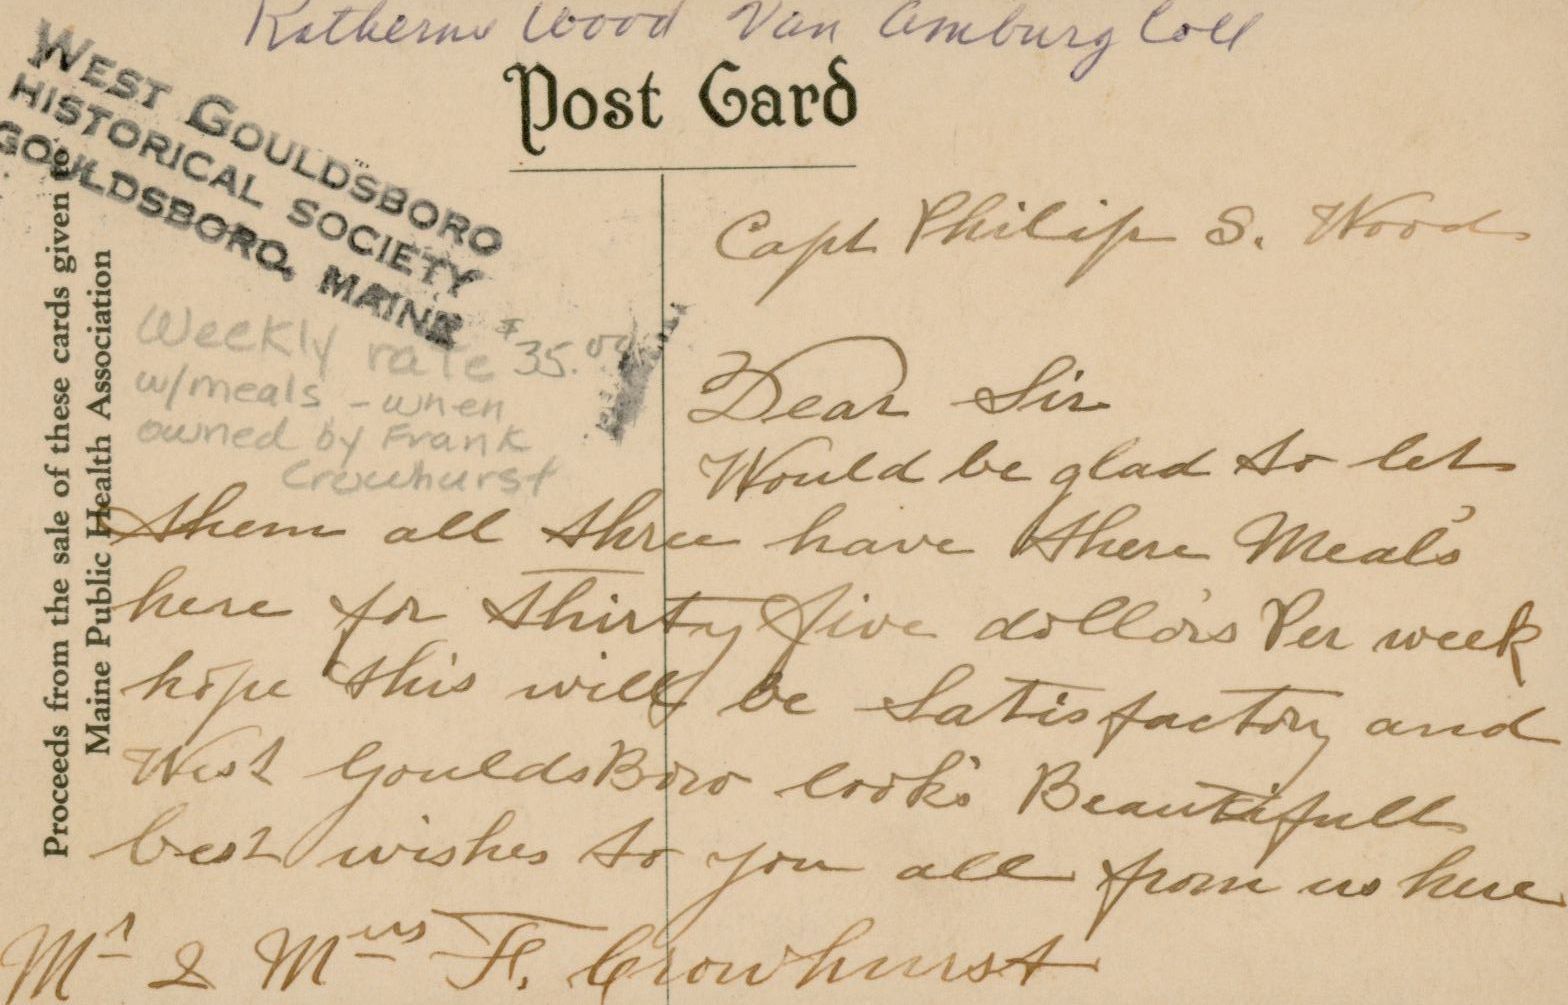 Katherine Wood Van Amburg Coll
Post Card
WEST GOULDSBORO
HISTORICAL SOCIETY
GOULDSBORO, MAINE
Proceeds from the sale of these cards given to
Maine Public Health Association
Weekly rate $35.00
w/meals - when
owned by Frank
Crowhurst
Capt Philip S. Wood.
Dear Sir
Would be glad to let
them all three have there Meal's
here for Thirty five dollo's Per week
hope this will be Satisfactory and
West GouldsBoro look's Beautifull
best wishes to you all from us here
Mr & Mrs F. Crowhurst